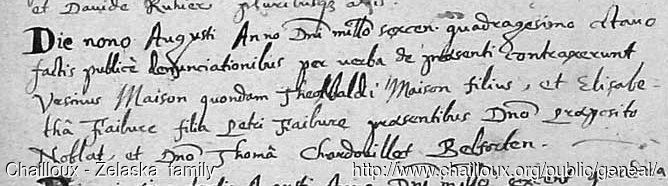 et Davide Ruhier pluribusq3 aliis.
Die nono Augusti Anno Dni millo sexcen. quadragesimo octavo
factis publicè denunciationibus per verba de praesenti contraxerunt
Ursinus Maison quondam Theobaldi Maison filius, et Elisabe-
thâ Faibure filia Petri Faibure praesentibus Dno praeposito
Noblat et Dno Thomâ Chardouillet Belforten.
Chailloux - Zelaska family http://www.chailloux.org/public/geneal/
Augusti Anno Dni millo